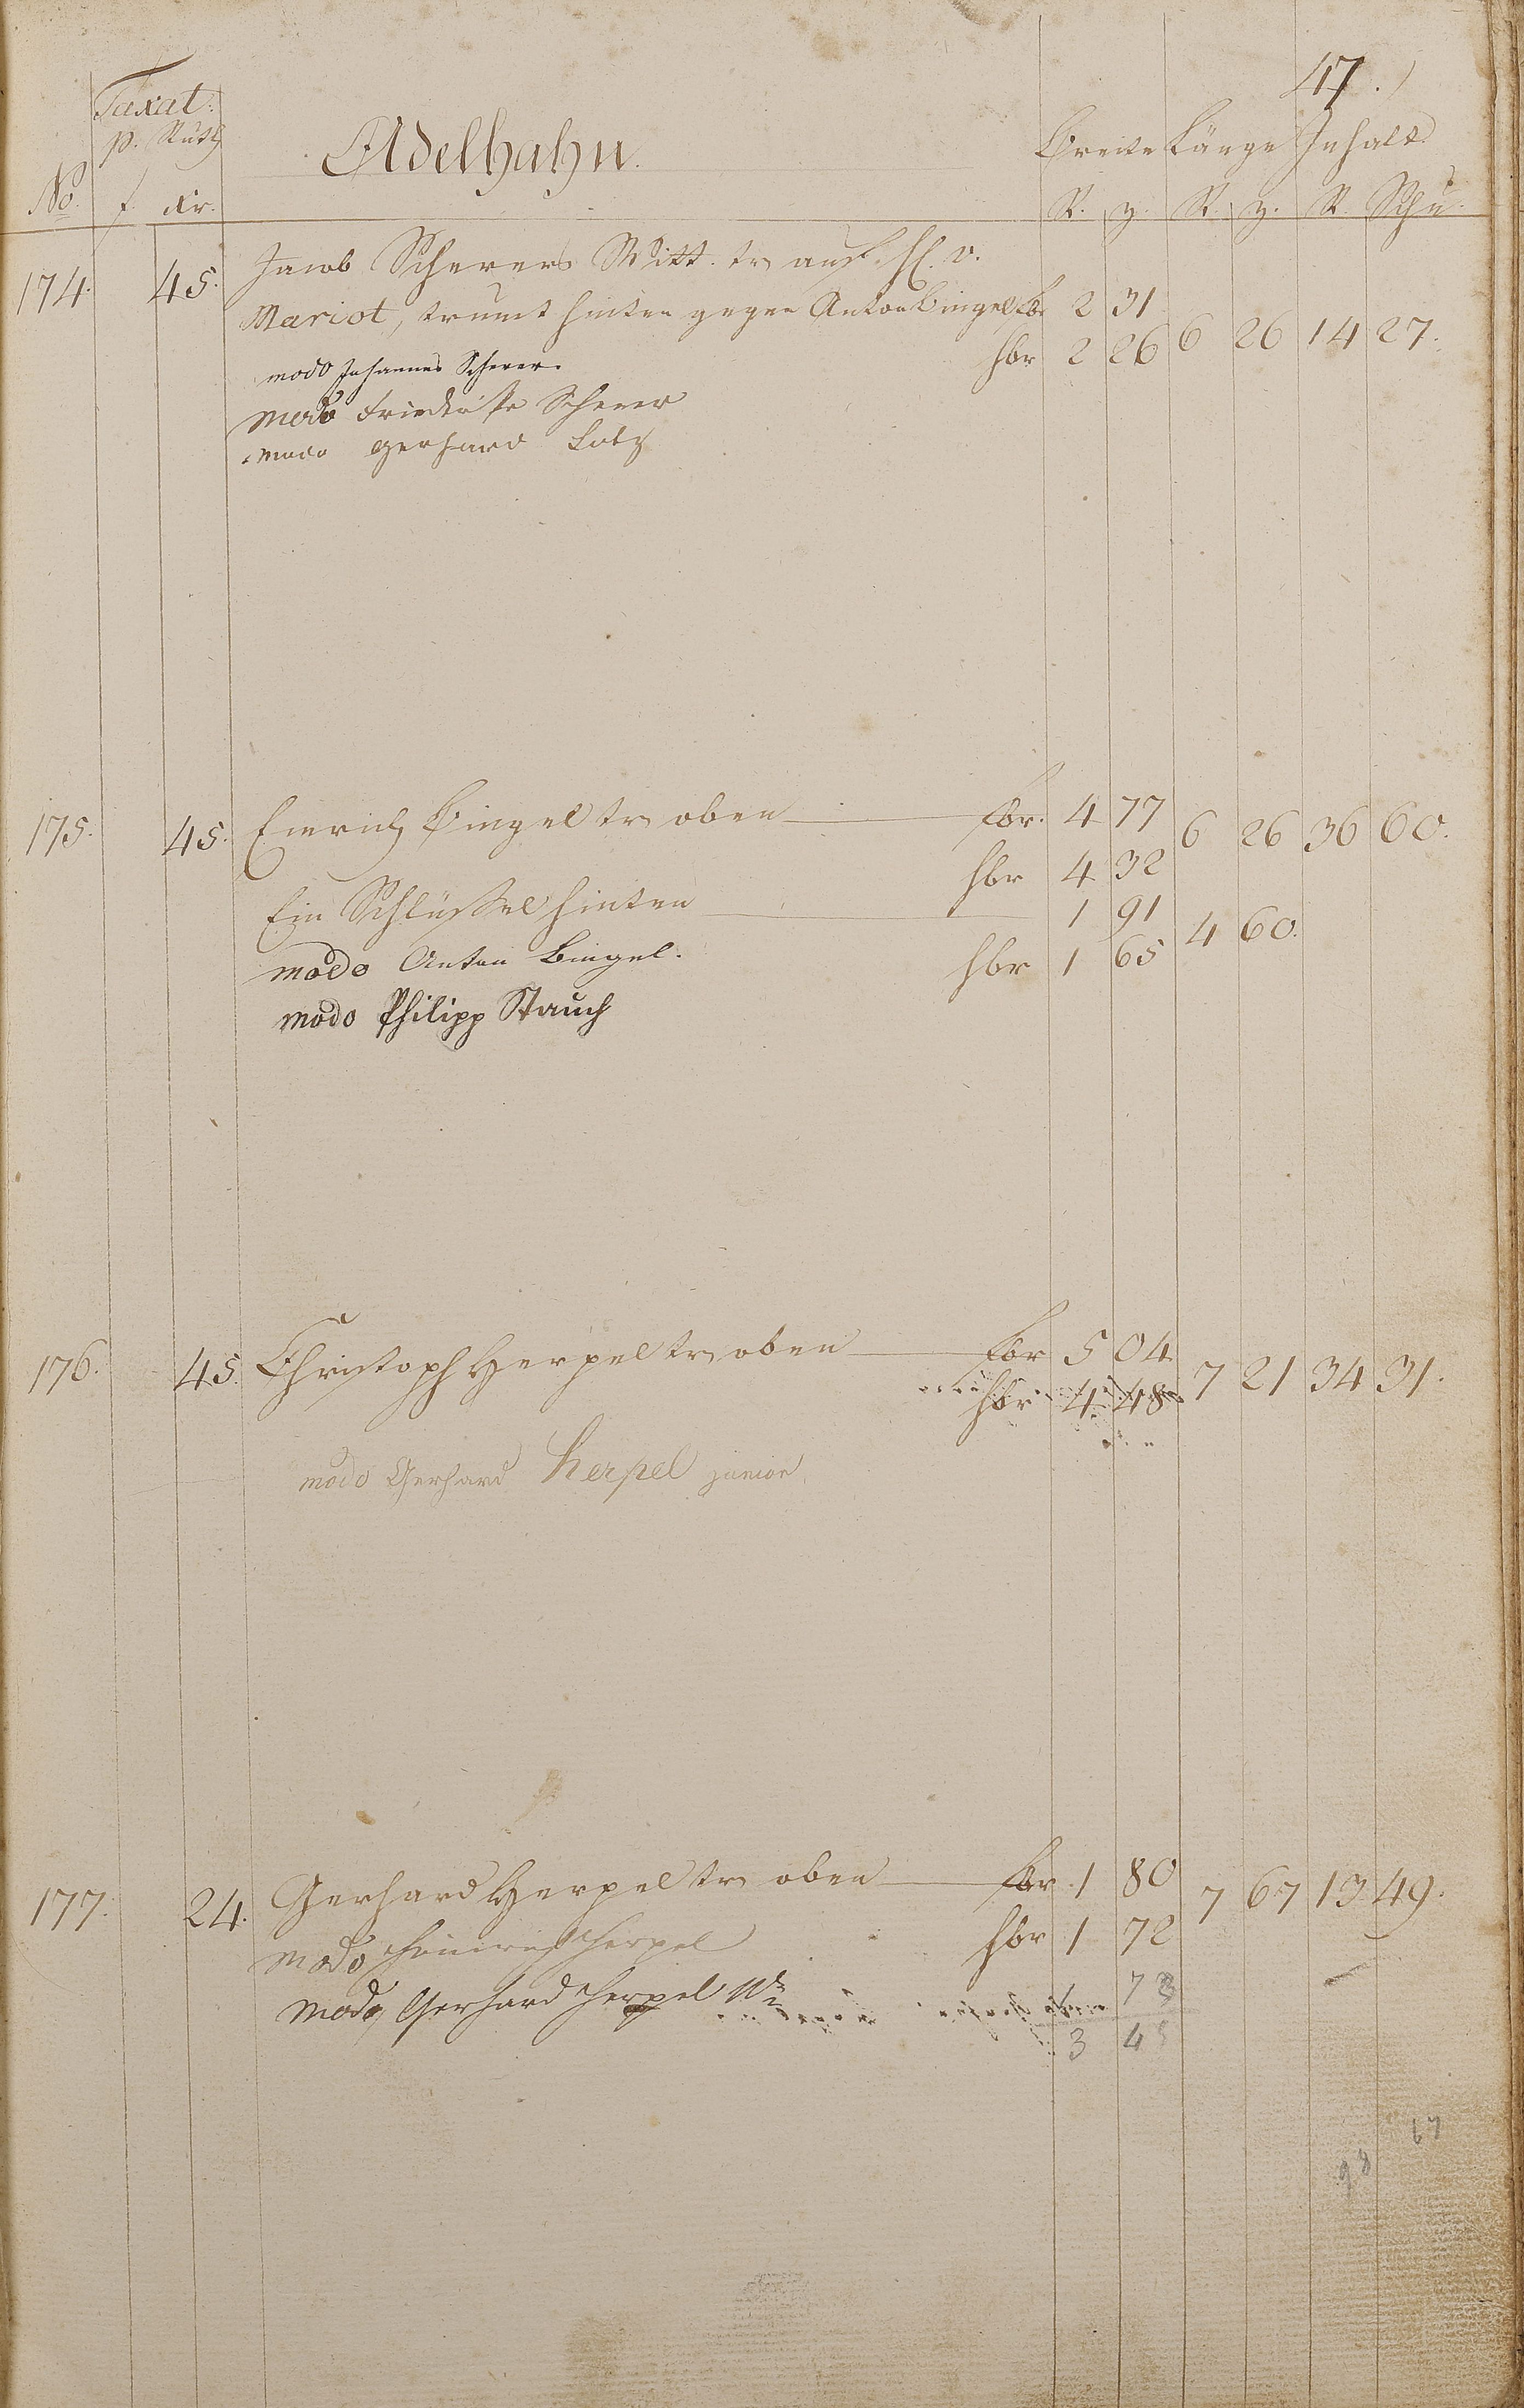 47.
Taxat:
p. Ruth
Adelhahn.
Breite Länge Inhalt
No. f. xr. R. z. R. z. R. Schu.
174. 45. Jacob Scherers Witt. tr. auf H. v.
Mariot, trumt hinten gegen Anton Bingel fbr 2 31
hbr 2 26 6 26 14 27.
modo Johannes Scherer.
modo Scherer
modo Gerhard Lotz
175. 45. Emrich Bingel tr. oben fbr. 4 77 6 26 36 60.
hbr 4 32
Ein Schlüssel hinten 1 91 4 60.
modo Anton Bingel. hbr 1 65
modo Philipp Stauch
176. 45. Christoph Herpel tr. oben fbr 5 04 7 21 34 31.
hbr 4 48
modo Gerhard Herpel junior.
177. 24. Gerhard Herpel tr. oben fbr. 1 80 7 67 13 49.
modo Heinrich Herpel hbr 1 72
modo Gerhard Herpel Ww 73
3 45
67
98